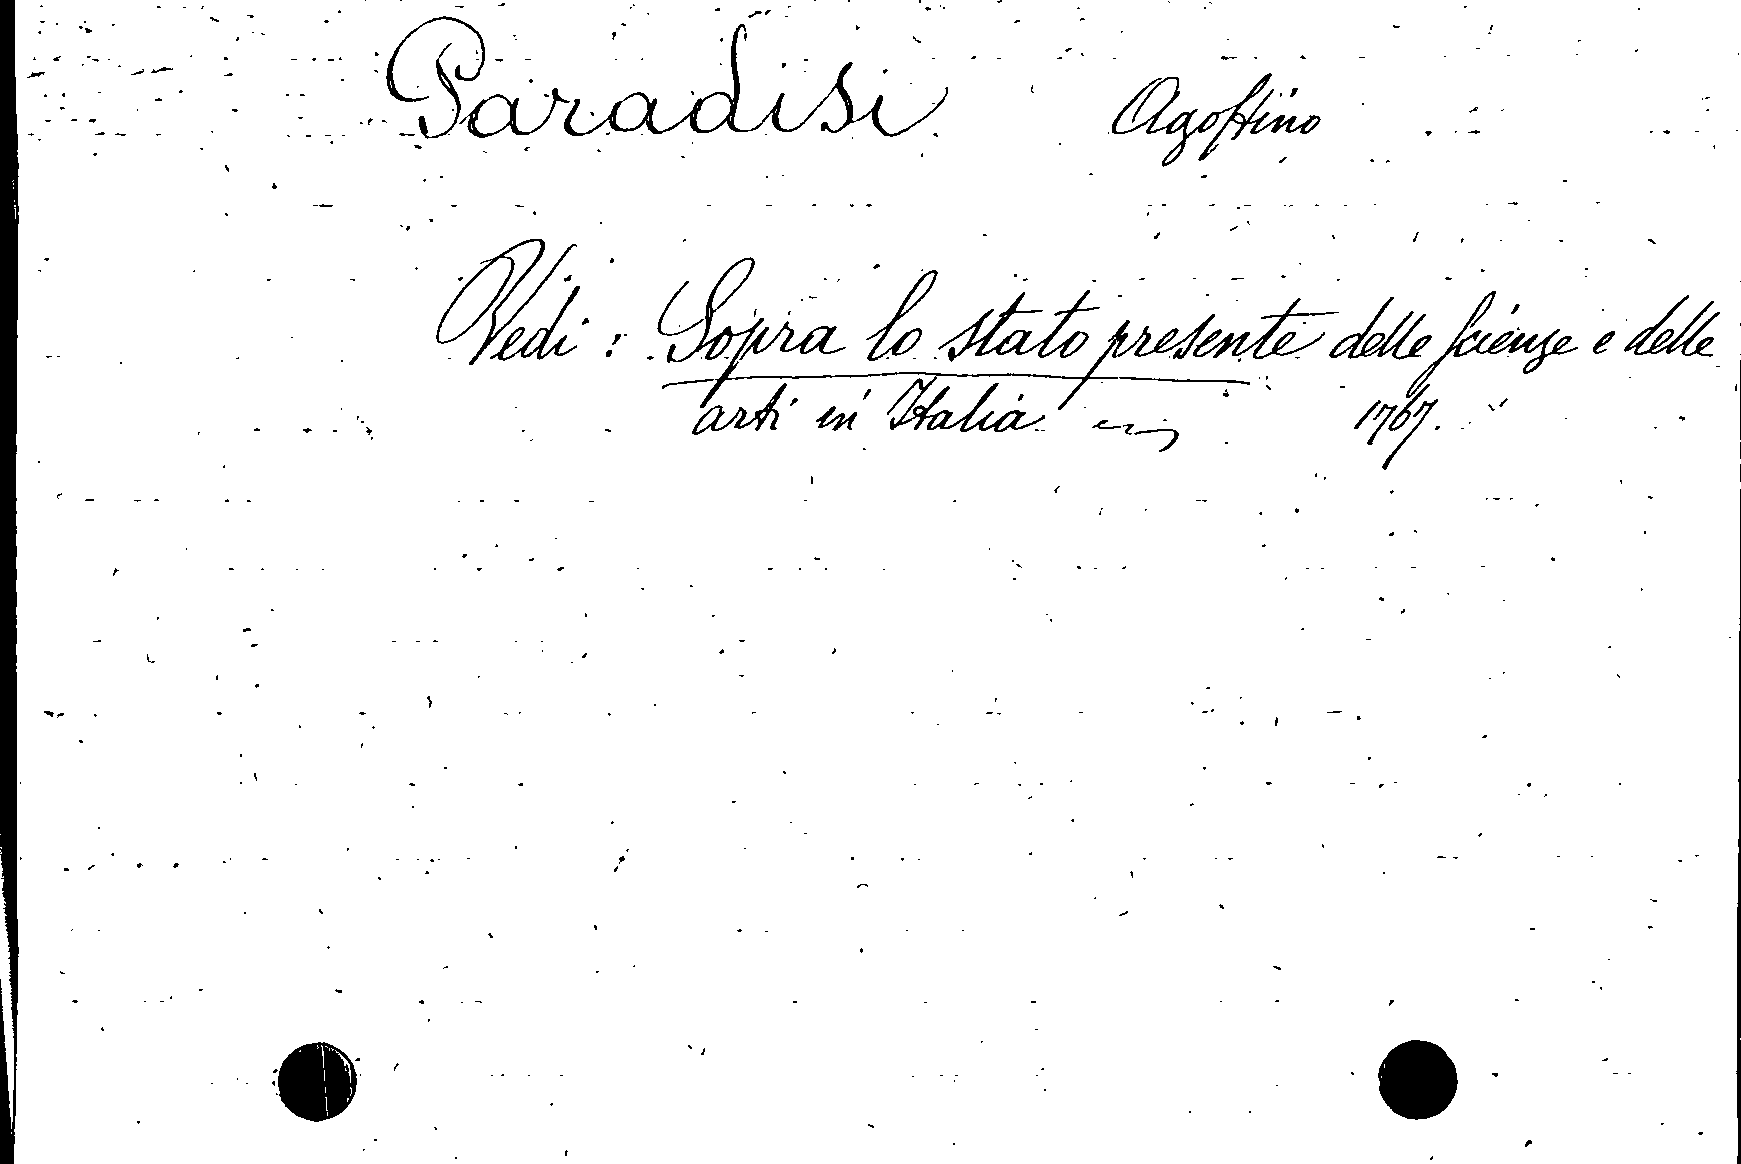 Paradisi Agostino
Vedi: Sopra lo stato presente delle scienze e delle
arti in Italia 1767.